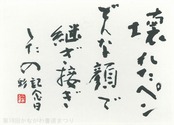 壊れたペン
どんな顔で
継ぎ接ぎ
したの
記念日